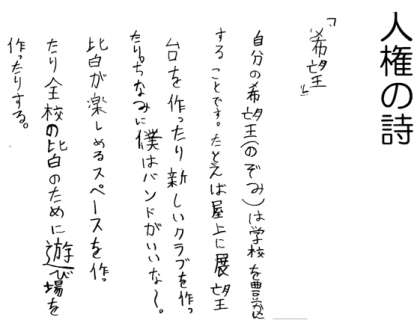 人権の詩
「希望」
自分の希望(のぞみ)は学校を豊かに
することです。たとえば屋上に展望
台を作ったり新しいクラブを作っ
たり。ちなみに僕はバンドがいいな〜。
皆が楽しめるスペースを作っ
たり全校の皆のために遊び場を
作ったりする。